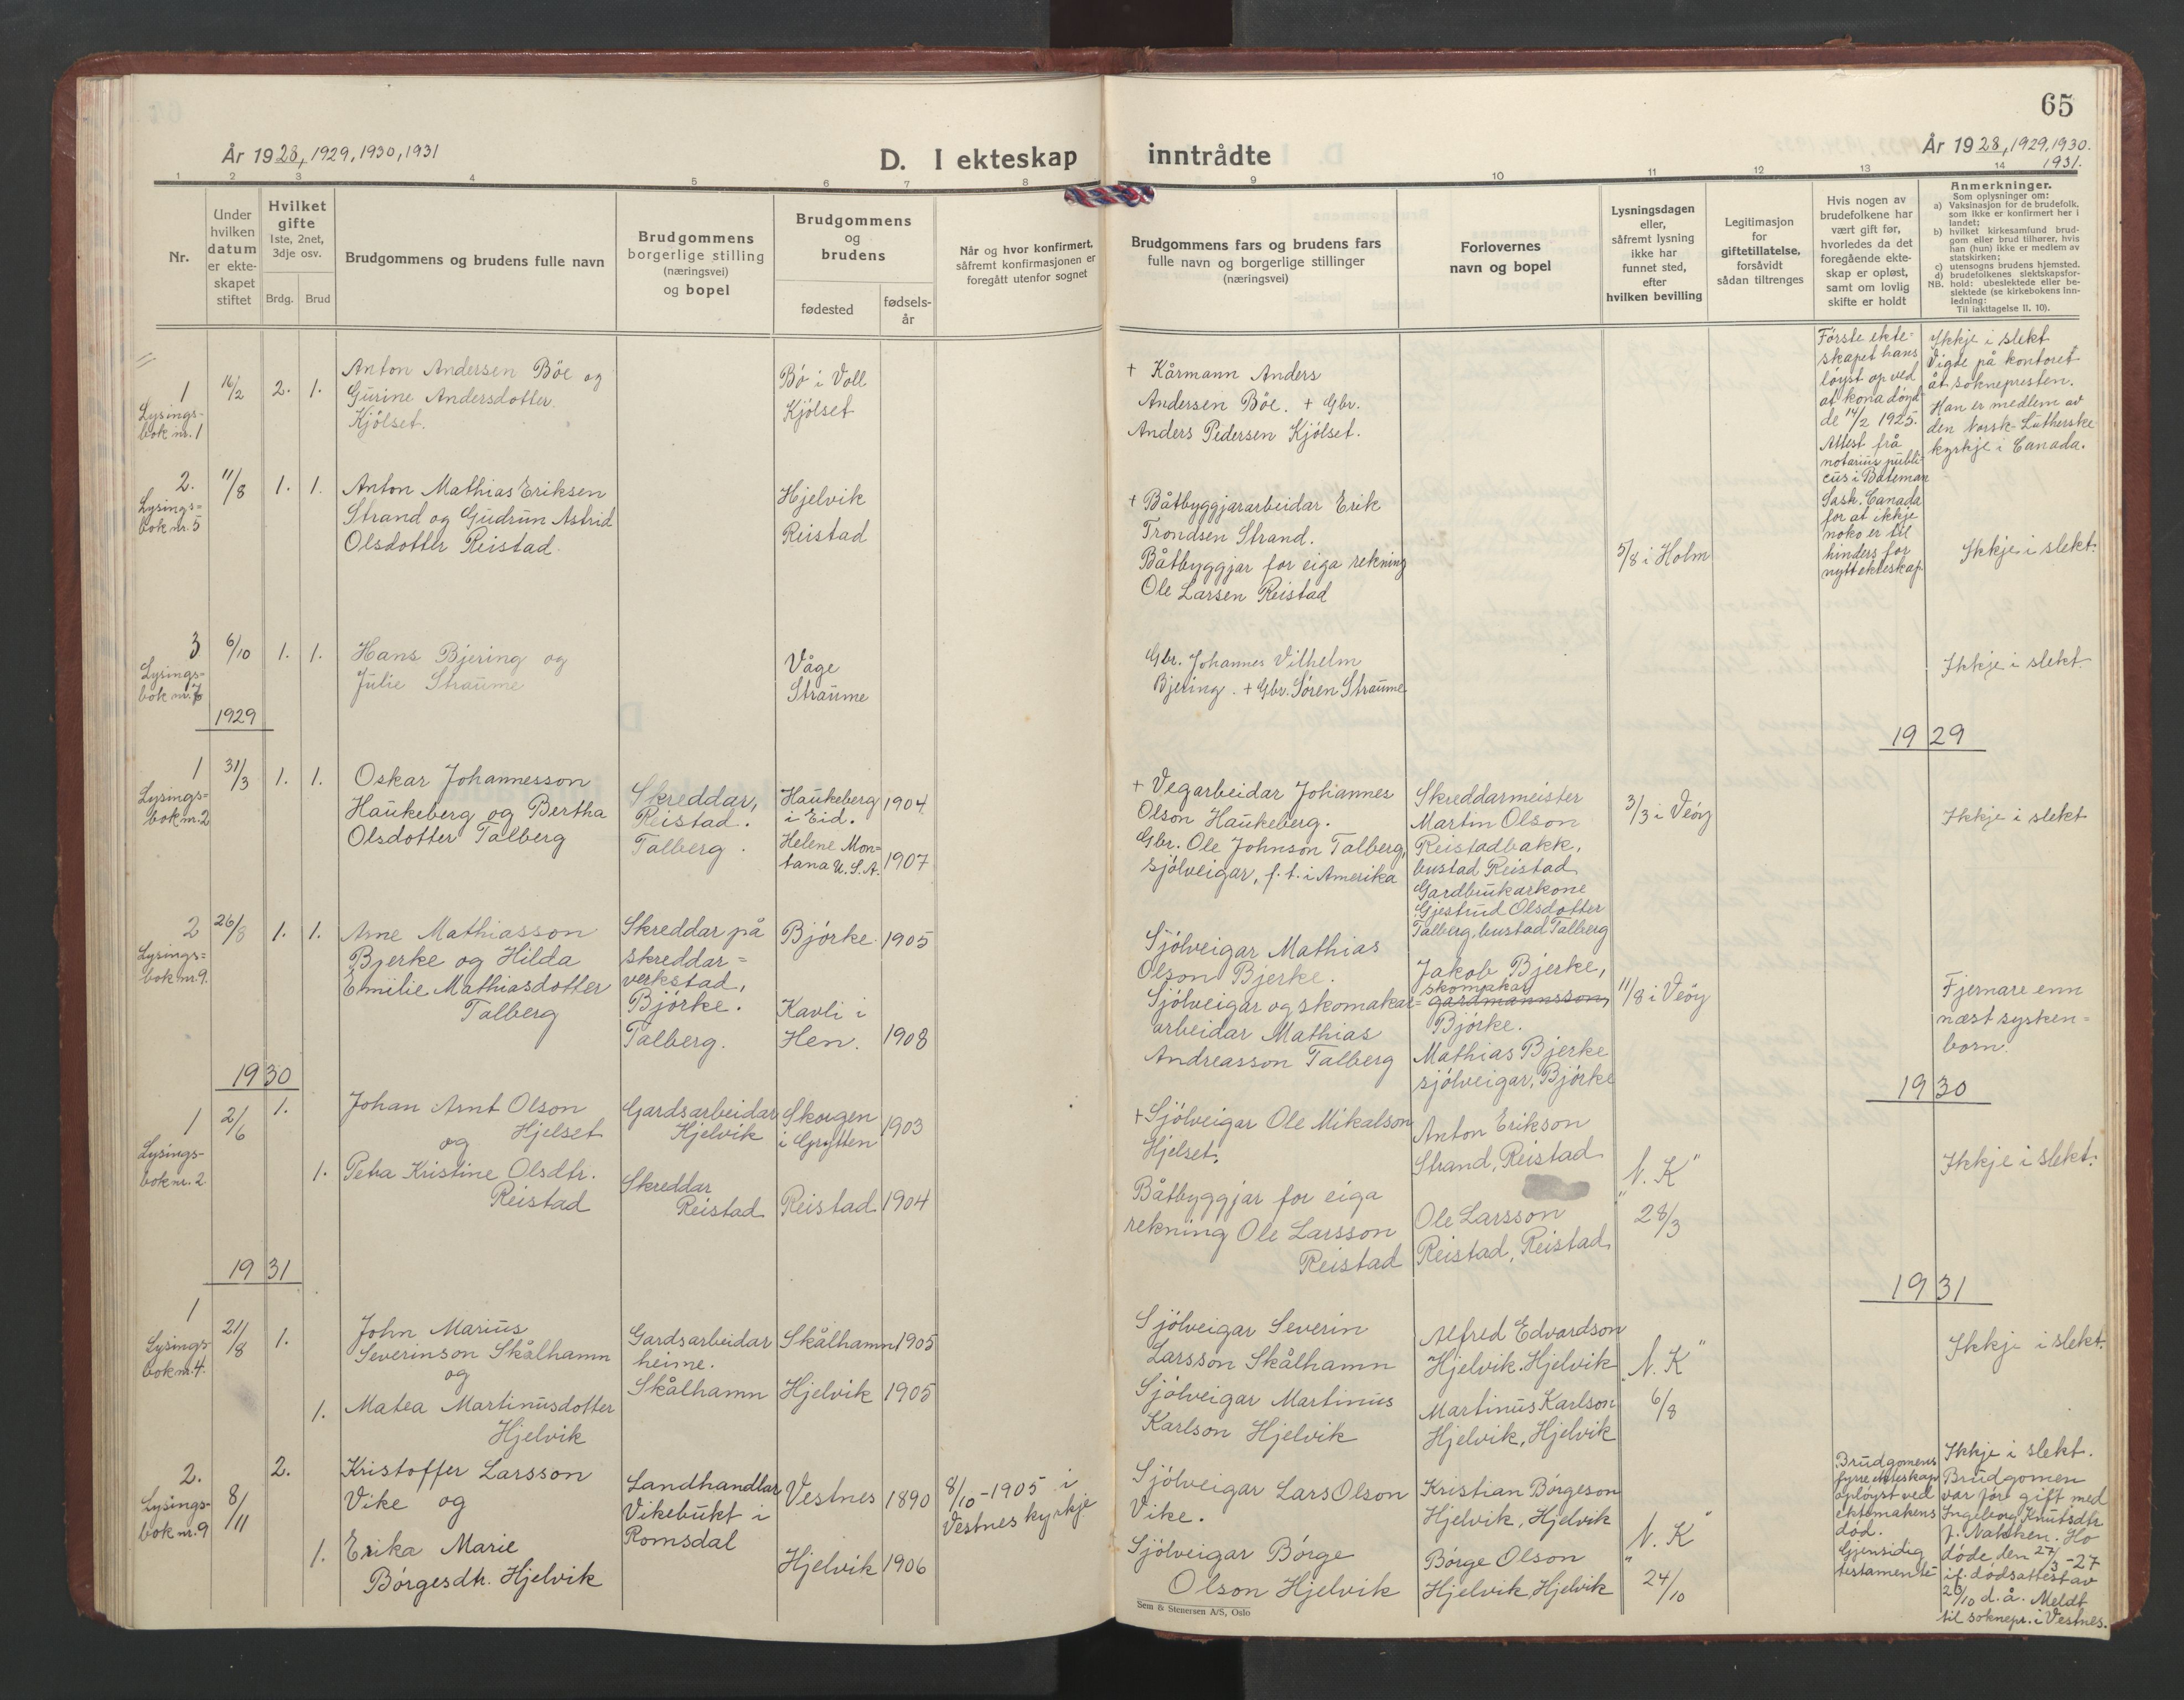 65
År 1928, 1929, 1930, 1931
D. I ekteskap inntrådte
År 1928, 1929, 1930.
1931.
1 2 3 4 5 6 7 8 9 10 11 12 13 14
Nr.
Under
hvilken
datum
er ekte-
skapet
stiftet
Hvilket
gifte
1ste, 2net,
3dje osv.
Brdg. Brud
Brudgommens og brudens fulle navn
Brudgommens
borgerlige stilling
(næringsvei)
og bopel
Brudgommens
og
brudens
fødested
fødsels-
år
Når og hvor konfirmert,
såfremt konfirmasjonen er
foregått utenfor sognet
Brudgommens fars og brudens fars
fulle navn og borgerlige stillinger
(næringsvei)
Forlovernes
navn og bopel
Lysningsdagen
eller,
såfremt lysning
ikke har
funnet sted,
efter
hvilken bevilling
Legitimasjon
for
giftetillatelse,
forsåvidt
sådan tiltrenges
Hvis nogen av
brudefolkene har
vært gift før,
hvorledes da det
foregående ekte-
skap er opløst,
samt om lovlig
skifte er holdt
Anmerkninger.
Som oplysninger om:
a) Vaksinasjon for de brudefolk,
som ikke er konfirmert her i
landet;
b) hvilket kirkesamfund brud-
gom eller brud tilhører, hvis
han (hun) ikke er medlem av
statskirken;
c) utensogns brudens hjemsted.
d) brudefolkenes slektskapsfor-
hold: ubeslektede eller be-
slektede (se kirkebokens inn-
ledning:
NB.
Til iakttagelse II. 10).
1
Lysings-
bok nr. 1
16/2
2. 1.
Anton Andersen Böe og
Gurine Andersdotter
Kjölset.
Bø i Voll
Kjölset
+ Kårmann Anders
Andersen Böe. + Gbr.
Anders Pedersen Kjölset.
Förste ekte-
skapet hans
löyst op ved
at kona döyd-
de 14/2 1925.
Attest frå
notarius publi-
cus i Bateman
Sask. Canada
for at ikkje
noko er til
hinders for
nytt ekteskap
Ikkje i slekt
Vigde på kontoret
åt soknepresten.
Han er medlem av
den Norsk-Lutherske
kyrkje i Canada.
2.
Lysings-
bok nr. 5
11/8
1. 1.
Anton Mathias Eriksen
Strand og Gudrun Astrid
Olsdotter Reistad.
Hjelvik
Reistad
+ Båtbyggjararbeidar Erik
Trondsen Strand.
Båtbyggjar for eiga rekning
Ole Larsen Reistad
5/8 i Holm
Ikkje i slekt.
3
Lysings-
bok nr. 7
6/10
1. 1.
Hans Bjering og
Julie Straume
Våge
Straume
Gbr. Johannes Vilhelm
Bjering. + Gbr. Sören Straume
Ikkje i slekt.
1929
1929
1
Lysings-
bok nr. 2
31/3
1. 1.
Oskar Johannesson
Haukeberg og Bertha
Olsdotter Talberg
Skreddar,
Reistad.
Talberg.
Haukeberg
i Eid.
1904.
Helene Mon-
tana U.S.A.
1907
+ Vegarbeidar Johannes
Olson Haukeberg.
Gbr. Ole Johnson Talberg,
sjölveigar, f. t. i Amerika
Skreddarmeister
Martin Olson
Reistadbakk,
bustad Reistad
Gardbrukarkone
Gjestrud Olsdotter
Talberg, bustad Talberg
3/3 i Veöy
Ikkje i slekt
2
Lysings-
bok nr. 9.
26/8
1. 1.
Arne Mathiasson
Bjerke og Hilda
Emilie Mathiasdotter
Talberg
Skreddar på
skreddar-
verkstad,
Björke.
Talberg.
Björke. 1905
Kavli i
Hen. 1908
Sjölveigar Mathias
Olson Bjerke.
Sjölveigar og skomakar-
arbeidar Mathias
Andreasson Talberg
Jakob Bjerke,
skomakar
gardmannsson,
Björke.
Mathias Bjerke
sjölveigar, Björke
11/8 i Veöy
Fjernare enn
næst sysken-
born.
1930
1930
1
Lysings-
bok nr. 2
2/6
1.
Johan Arnt Olson
Hjelset
og
1.
Petra Kristine Olsdtr.
Reistad
Gardsarbeidar
Hjelvik
Skreddar
Reistad
Skorgen
i Grytten
1903
Reistad 1904
+ Sjölveigar Ole Mikalson
Hjelset.
Båtbyggjar for eiga
rekning Ole Larsson
Reistad
Anton Erikson
Strand, Reistad
Ole Larsson
Reistad, Reistad
"N. K"
28/3
Ikkje i slekt.
1931
1931
1
Lysings-
bok nr. 4.
21/8
1.
John Marius
Severinson Skålhamn
og
1.
Matea Martinusdotter
Hjelvik
Gardsarbeidar
heime.
Skålhamn
Skålhamn 1905
Hjelvik 1905
Sjölveigar Severin
Larsson Skålhamn
Sjölveigar Martinus
Karlson Hjelvik
Alfred Edvardson
Hjelvik. Hjelvik
Martinus Karlson
Hjelvik, Hjelvik
"N. K"
6/8
Ikkje i slekt.
2.
Lysings-
bok nr. 9
8/11
2.
Kristoffer Larsson
Vike og
1.
Erika Marie
Börgesdtr. Hjelvik
Landhandlar
Vikebukt i
Romsdal
Vestnes 1890
Hjelvik 1906
8/10-1905 i
Vestnes kyrkje
Sjölveigar Lars Olson
Vike.
Sjölveigar Börge
Olson Hjelvik
Kristian Börgeson
Hjelvik, Hjelvik
Börge Olson
Hjelvik, Hjelvik
"N. K"
24/10
Brudgomens
fyrre ekteskap
oplöyst ved
ektemakens
död.
Gjensidig
testamente
Ikkje i slekt.
Brudgomen
var före gift med
Ingeborg Knutsdtr
f. Nakken. Ho
döde den 27/3-27
if. dödsattest av
26/10 d.å. Meldt
til soknepr. i Vestnes.
Sem & Stenersen A/S, Oslo